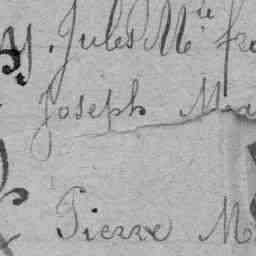 y. Jules M.le fr
Joseph Ma
Pierre M